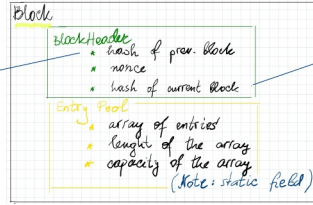 Block
BlockHeader
* hash of prev. Block
* nonce
* hash of current Block
Entry Pool
* array of entries
* lenght of the array
* capacity of the array
(Note: static field)